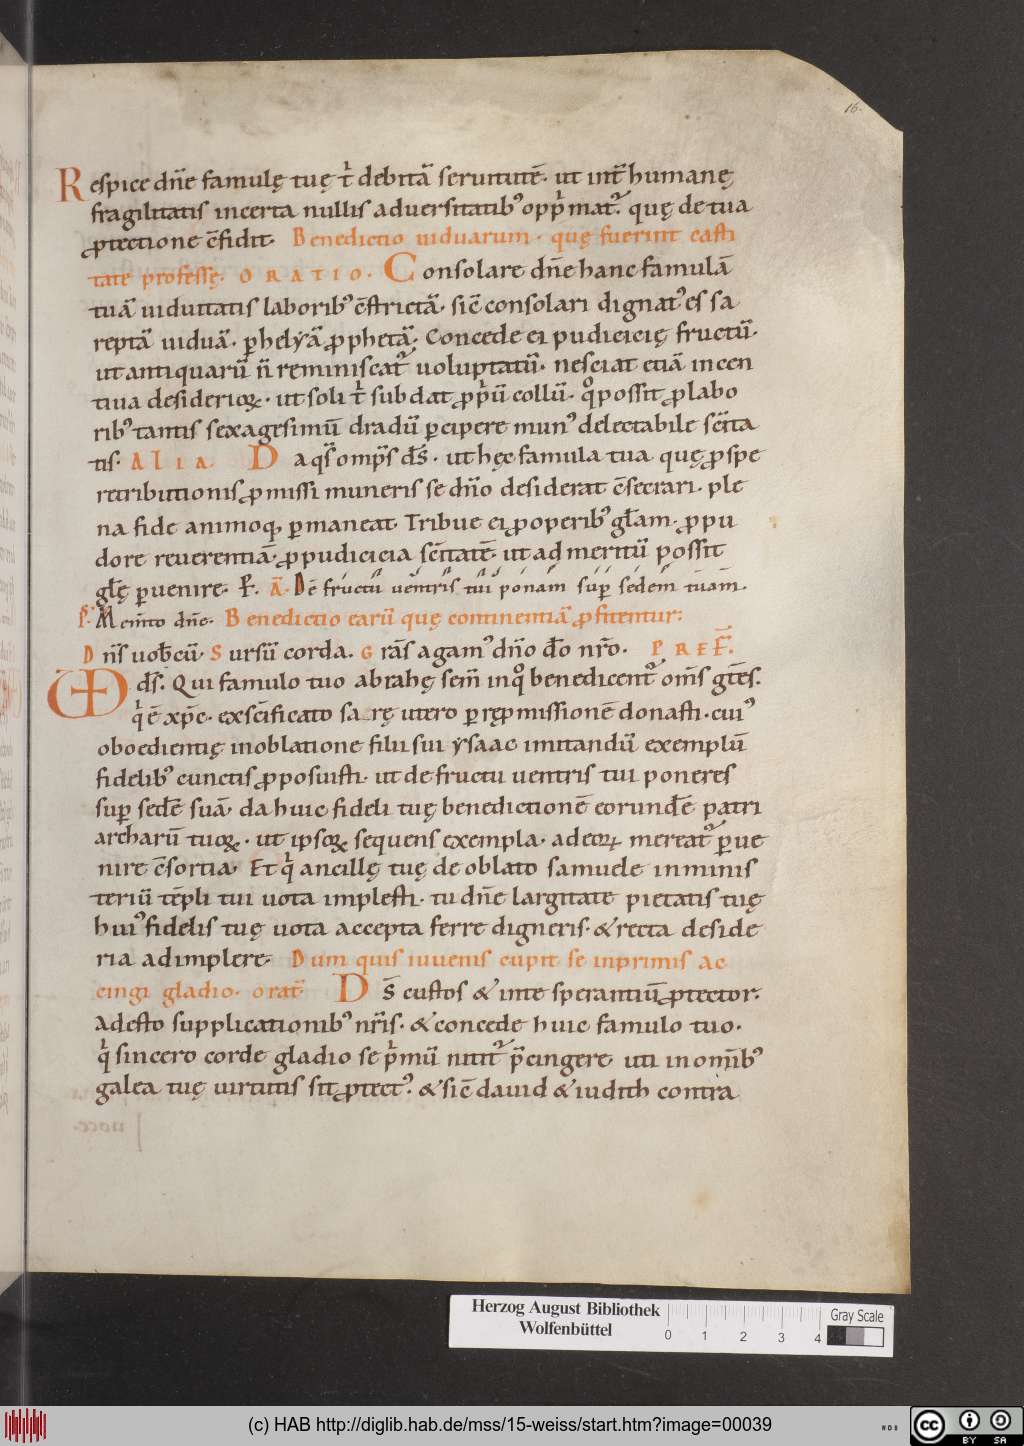 16.
Respice dn̄e famulę tuę t̍ debitā seruitutē. ut int̄ humanę
fragilitatis incerta nullis aduersitatib' opp̍mat᷑. quę de tua
ꝓtectione c̄fidit. Benedictio uiduarum. quę fuerint casti
tate professę. ORATIO. Consolare dn̄e hanc famulā
tuā uiduitatis laborib' c̄strictā. sic̄ consolari dignat' es sa
reptā uiduā. ꝑ helẏā ꝓphetā. Concede ei pudicicię fructū.
ut antiquarū n̄ reminiscat᷑ uoluptatū. nesciat etiā incen
tiua desiderioꝝ. ut soli t̍ subdat ꝓp̍ū collū. qͦ possit ꝓ labo
rib' tantis sexagesimū dradū ꝑcipere mun' delectabile sc̄ita
tis. ALIA. Da qs̄ omp̄s ds̄. ut hęc famula tua quę ꝓ spe
retributionis ꝓmissi muneris se dn̄o desiderat c̄secrari. ple
na fide animoq, ꝑmaneat. Tribue ei ꝓ operib' gl̄am. ꝓ pu
dore reuerentiā. ꝓ pudicicia sc̄itatē. ut ad meritū possit
gl̄ę ꝑuenire. P̵. ā. Dē fructu uentris tui ponam suꝑ sedem tuam.
Ps. Mem̄to dn̄e. Benedictio earū quę continentiā ꝓfitentur:
Dn̄s uob̄cū. Sursū corda. Grās agam' dn̄o d̄o nr̄o. PREF̄.
VD ds̄. Qui famulo tuo abrahę sem̄ in qͦ benedicent᷑ om̄s gt̄es.
q̍ ē xp̄c. exsc̄ificato sarę utero ꝑ rępmissionē donasti. cui'
oboedientię in oblatione filii sui ẏsaac imitandū exemplū
fidelib' cunctis ꝓposuisti. ut de fructu uentris tui poneres
suꝑ sedē suā. da huic fideli tuę benedictionē eorundē patri
archarū tuoꝝ. ut ipsoꝝ sequens exempla. ad eoꝝ mereat᷑ ꝑue
nire c̄sortia. Et q̍ ancillę tuę de oblato samuele in minis
teriū tēpli tui uota implesti. tu dn̄e largitate pietatis tuę
hui' fidelis tuę uota accepta ferre digneris. & recta deside
ria adimplere. Dum quis iuuenis cupit se inprimis ac
cingi gladio. orat̄. Ds̄ custos & in te sperantiū ꝓtector.
Adesto supplicationib' nr̄is. & concede huic famulo tuo.
q̍ sincero corde gladio se p̍mū nitit᷑ p̄cingere. uti in om̄ib'
galea tuę uirtutis sit ꝓtect'. & sic̄ dauid & iudith contra
Herzog August Bibliothek
Wolfenbüttel
0 1 2 3 4
Gray Scale
(c) HAB http://diglib.hab.de/mss/15-weiss/start.htm?image=00039
CC BY SA